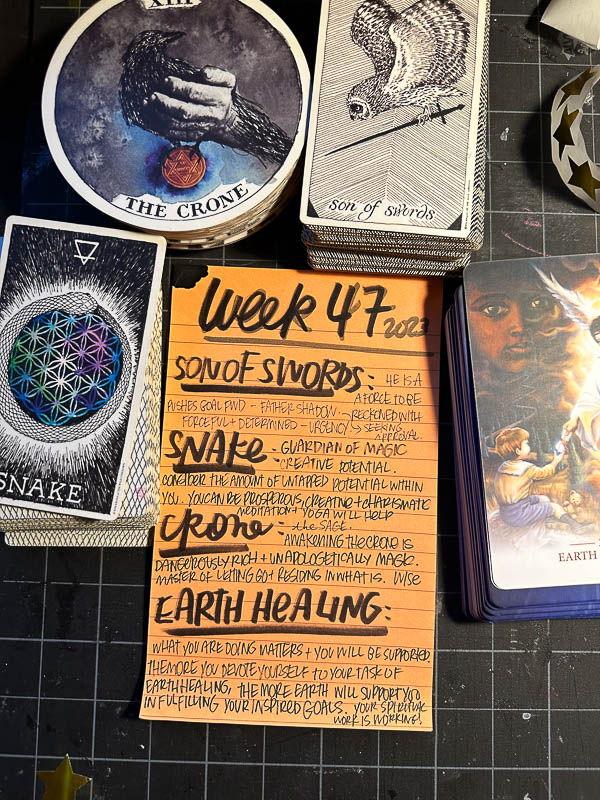 XIII
THE CRONE
son of swords
SNAKE
EARTH
WEEK 47 2023
SON OF SWORDS: HE IS A
A FORCE TO BE
PUSHES GOAL FWD - FATHER SHADOW - RECKONED WITH
FORCEFUL + DETERMINED - URGENCY → SEEKING
APPROVAL.
SNAKE - GUARDIAN OF MAGIC
CREATIVE POTENTIAL.
CONSIDER THE AMOUNT OF UNTAPPED POTENTIAL WITHIN
YOU. YOU CAN BE PROSPEROUS, CREATIVE + CHARISMATIC
MEDITATION + YOGA WILL HELP
CRONE - the SAGE.
AWAKENING THE CRONE IS
DANGEROUSLY RICH + UNAPOLOGETICALLY MAGIC.
MASTER OF LETTING GO + RESIDING IN WHAT IS. WISE
EARTH HEALING:
WHAT YOU ARE DOING MATTERS + YOU WILL BE SUPPORTED.
THE MORE YOU DEVOTE YOURSELF TO YOUR TASK OF
EARTH HEALING, THE MORE EARTH WILL SUPPORT YOU
IN FULFILLING YOUR INSPIRED GOALS. YOUR SPIRITUAL
WORK IS WORKING!